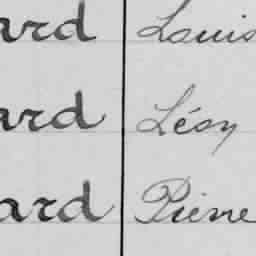 ard Louis
ard Léon
ard Pierre